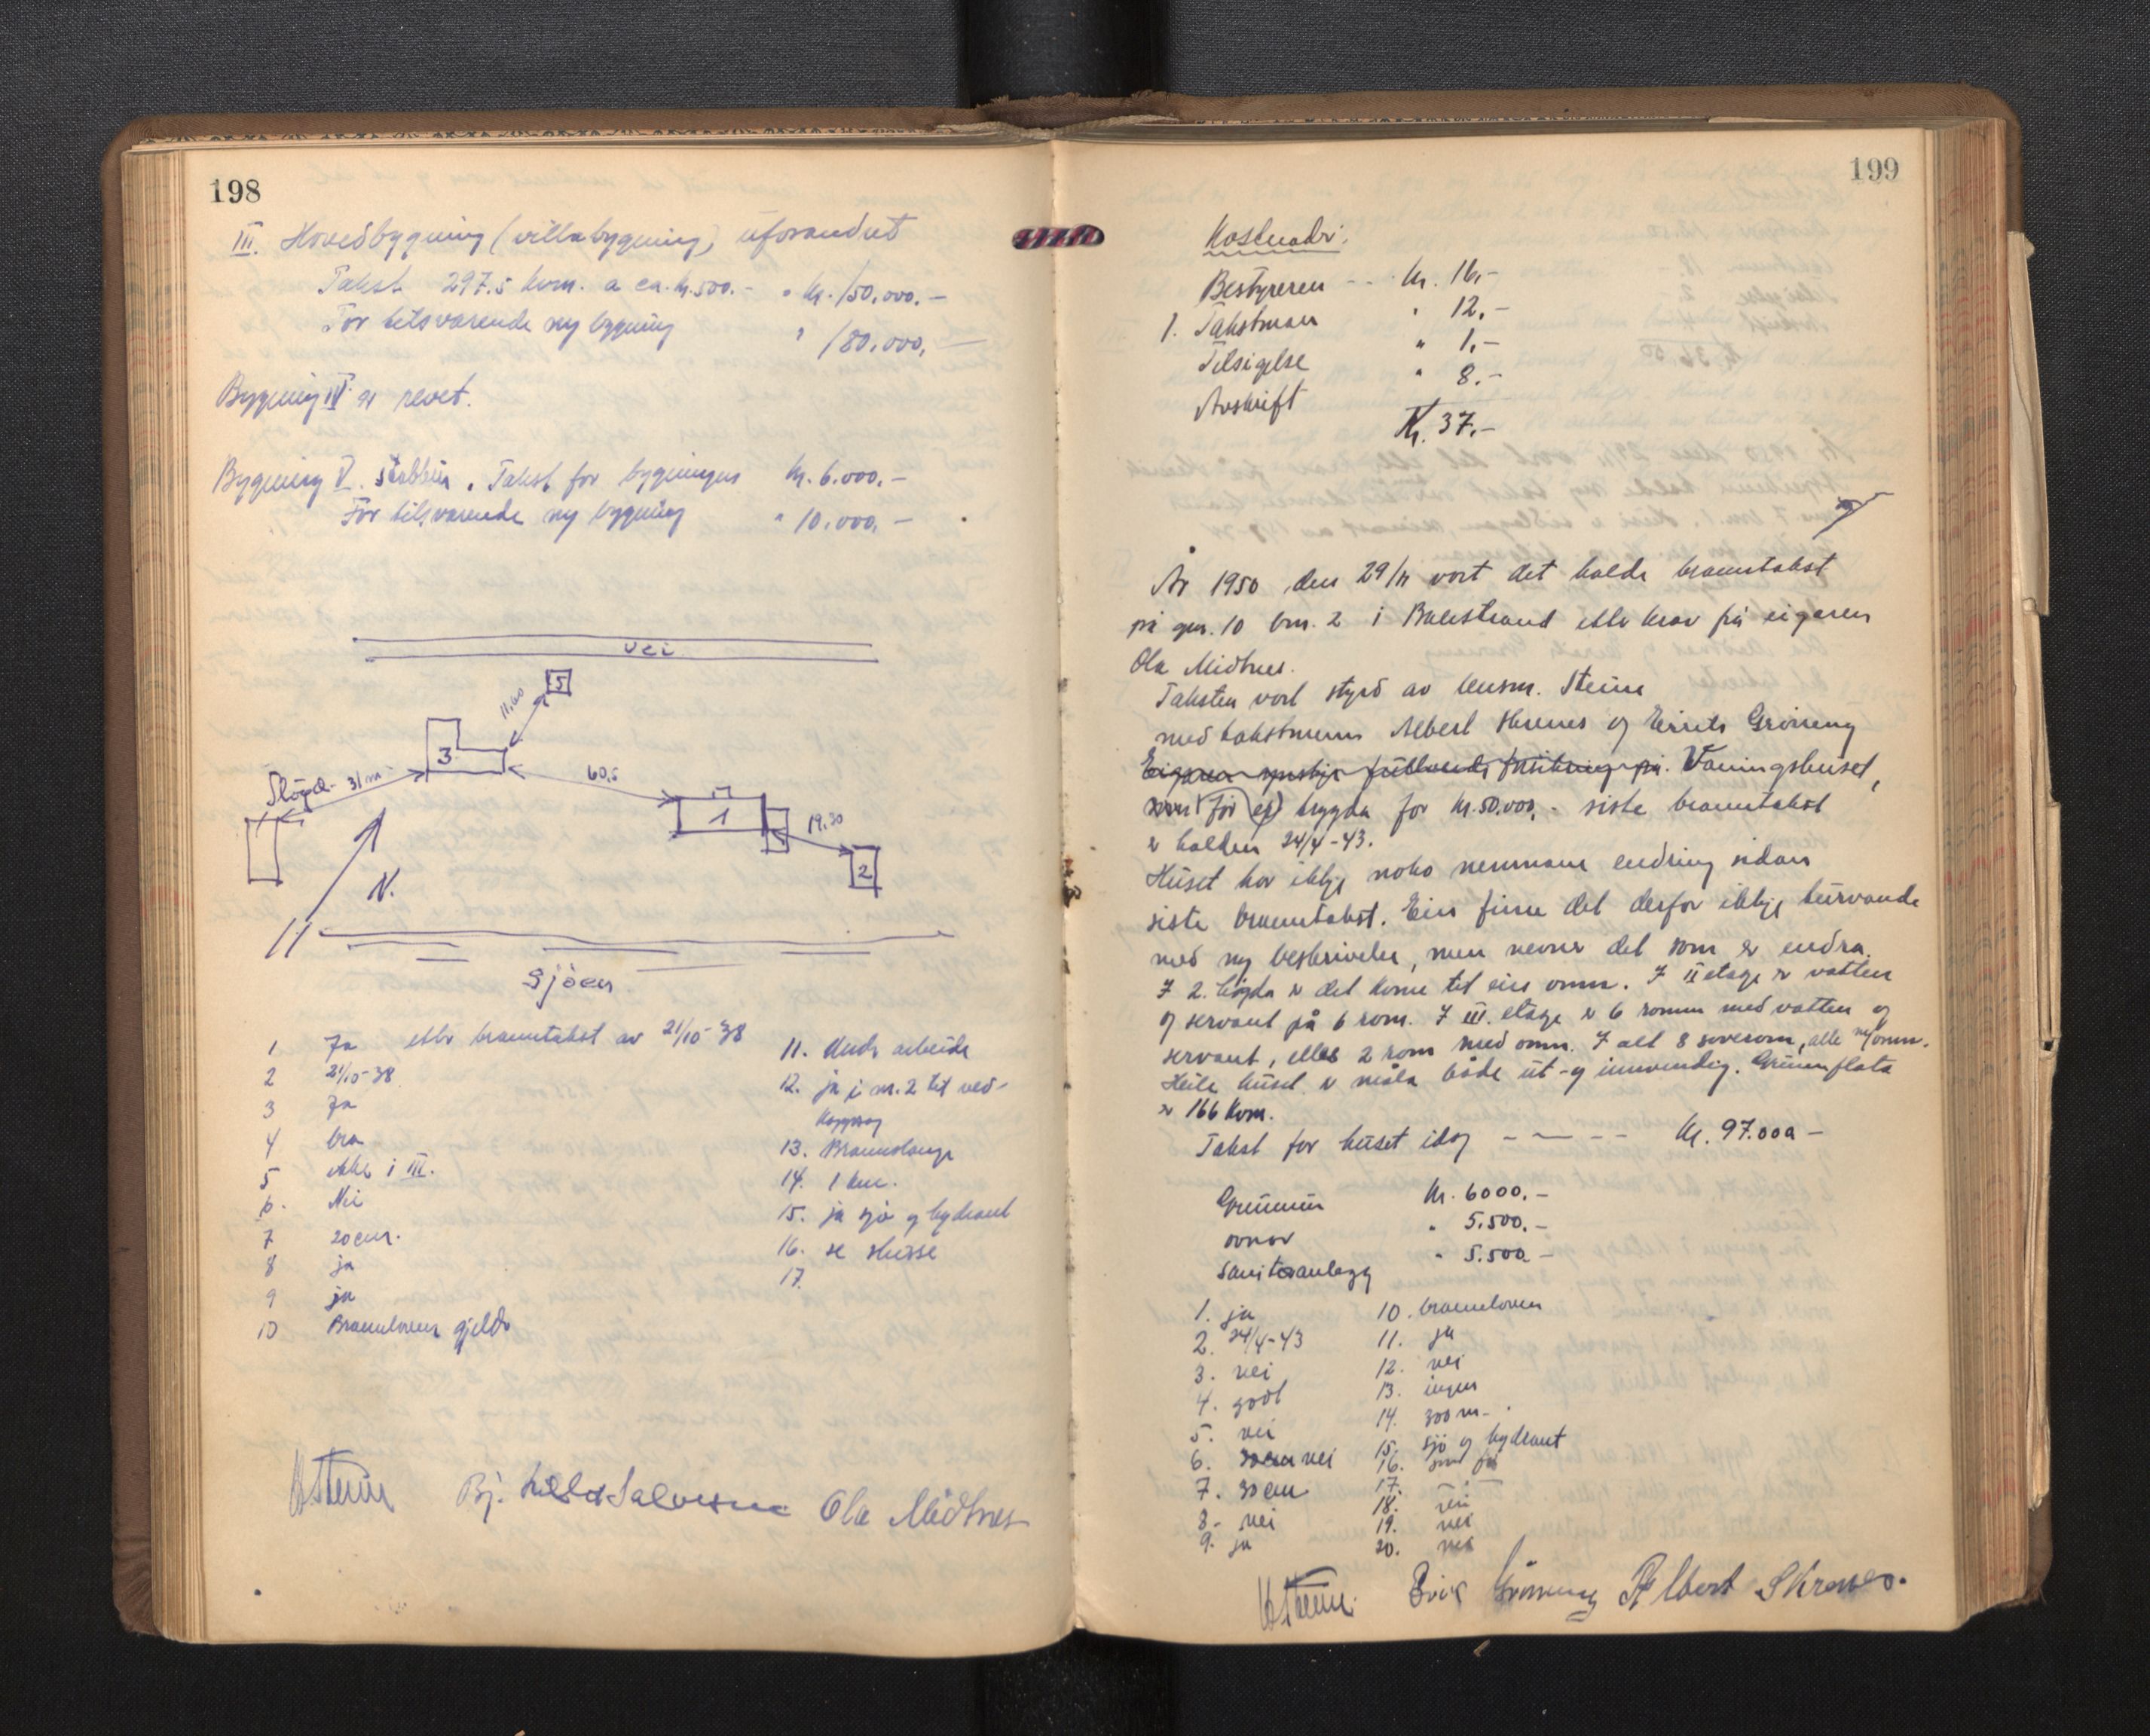 198
III. Hovedbygning (villabygning) uforandret
Takst 297.5 kvm. a ca. kr. 500.- " kr. 150.000.-
For tilsvarende ny bygning " 180.000.-
Bygning IV er revet.
Bygning V. stabbur. Takst for bygningen kr. 6.000.-
For tilsvarende ny bygning " 10.000.-
vei
5
11,60
3
Sløyd. 31 m
60,5
1
19,30
2
N.
Sjöen
1 Ja etter branntakst av 21/10-38
2 21/10-38
3 Ja
4 bra
5 i III.
6. Nei
7 20 cm.
8 ja
9 ja
10 Brannloven gjeld
11. arbeide
12. ja i nr. 2 til ved-
hogging
13. Brannslange
14. 1 km.
15. ja sjø og hydrant
16. se skisse
17.
Ola Midtnes
199
Kostnader:
Bestyreren - - . kr. 16,-
1. Takstmann " 12,-
Tilsigelse " 1,-
Avskrift " 8.-
Kr. 37.-
År 1950 den 29/11 vart det halde branntakst
på gnr. 10 bnr. 2 i Balestrand etter krav frå eigaren
Ola Midtnes.
Taksten vart styrd av lensm. Steine
med takstmenn Albert Skrenes og Grøneng
Eigaren ynskje på. Vaaningshuset,
som før er trygda for kr. 50.000,- siste branntakst
er halden 24/4-43.
Huset har ikkje noko nemnane endring sidan
siste branntakst. Ein finn det derfor ikkje turvande
med ny beskrivelse, men nevner det som er endra.
I 2. høgda er det kome til ein omn. I II etage er vatten
og servant på 6 rom. I III. etage er 6 romm med vatten og
servant, elles 2 rom med omn. I alt 8 soverom, alle m/omn.
Heile huset er måla både ut- og innvendig. Grunnflata
er 166 kvm.
Takst for huset idag - - - - kr. 97.000 -
Grunnmur kr. 6000.-
ovnar " 5.500.-
Saniteranlegg " 5.500 -
1. ja
2. 24/4-43
3. nei
4. godt
5. nei
6. nei
7. 30 cm
8. nei
9. ja
10. brannloven
11. ja
12. nei
13. ingen
14. 300 m.
15. sjø og hydrant
16.
17.
18. nei
19. nei
20. nei
Grøneng Albert Skrenes.